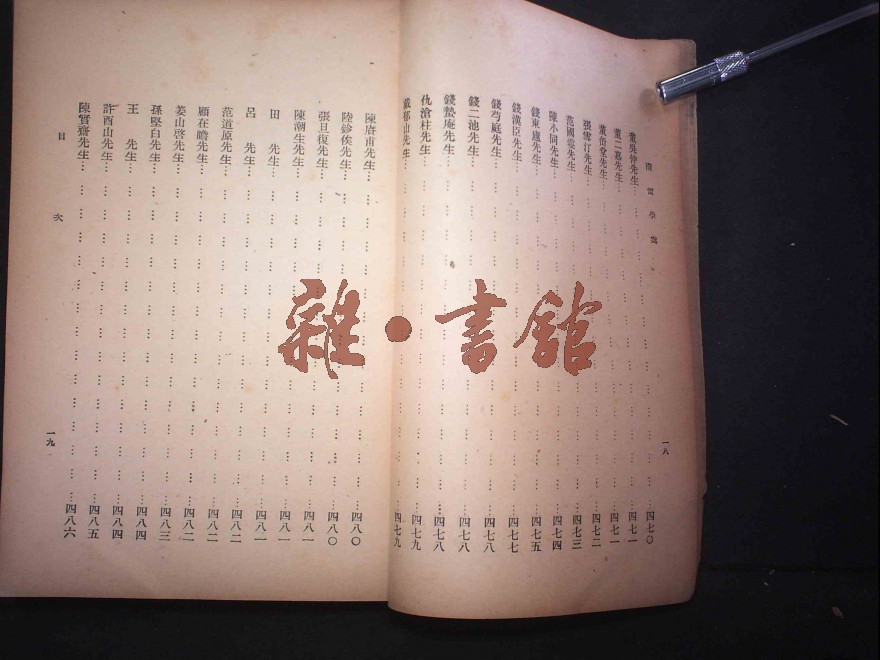 南雷學案
董吳仲先生…………四七〇
董二嘉先生…………四七一
董缶堂先生…………四七一
張雪汀先生…………四七二
范國雯先生…………四七三
陳小同先生…………四七四
錢東廬先生…………四七五
錢漢臣先生…………四七七
錢芍庭先生…………四七八
錢二池先生…………四七八
錢蟄庵先生…………四七八
仇滄柱先生…………四七九
戴郁山先生…………四七九
一八
陳賡甫先生…………四八〇
陸鉁俟先生…………四八〇
張旦復先生…………四八一
陳潮生先生…………四八一
田　先生…………四八一
呂　先生…………四八一
范道原先生…………四八二
顧在瞻先生…………四八二
姜山啓先生…………四八二
孫堅白先生…………四八三
王　先生…………四八四
許酉山先生…………四八四
陳實齋先生…………四八六
目次
一九
雜·書館